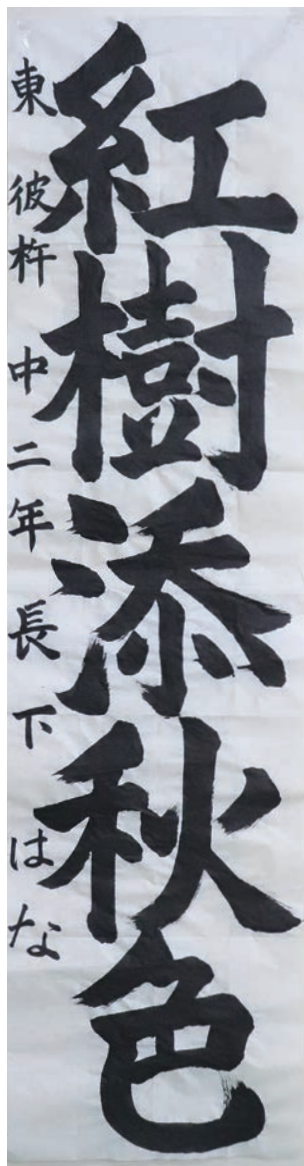 紅樹添秋色
東彼杵中二年長下はな